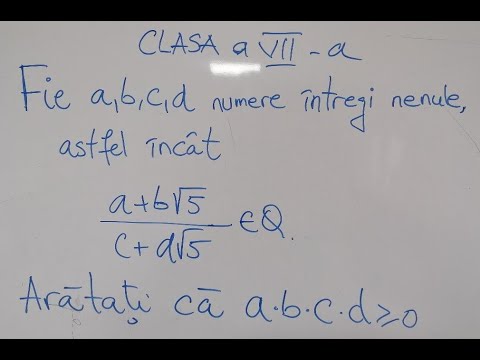 CLASA a VII-a
Fie a,b,c,d numere întregi nenule,
astfel încât
a+b√5
c+d√5
∈Q.
Arătați că a·b·c·d≥0